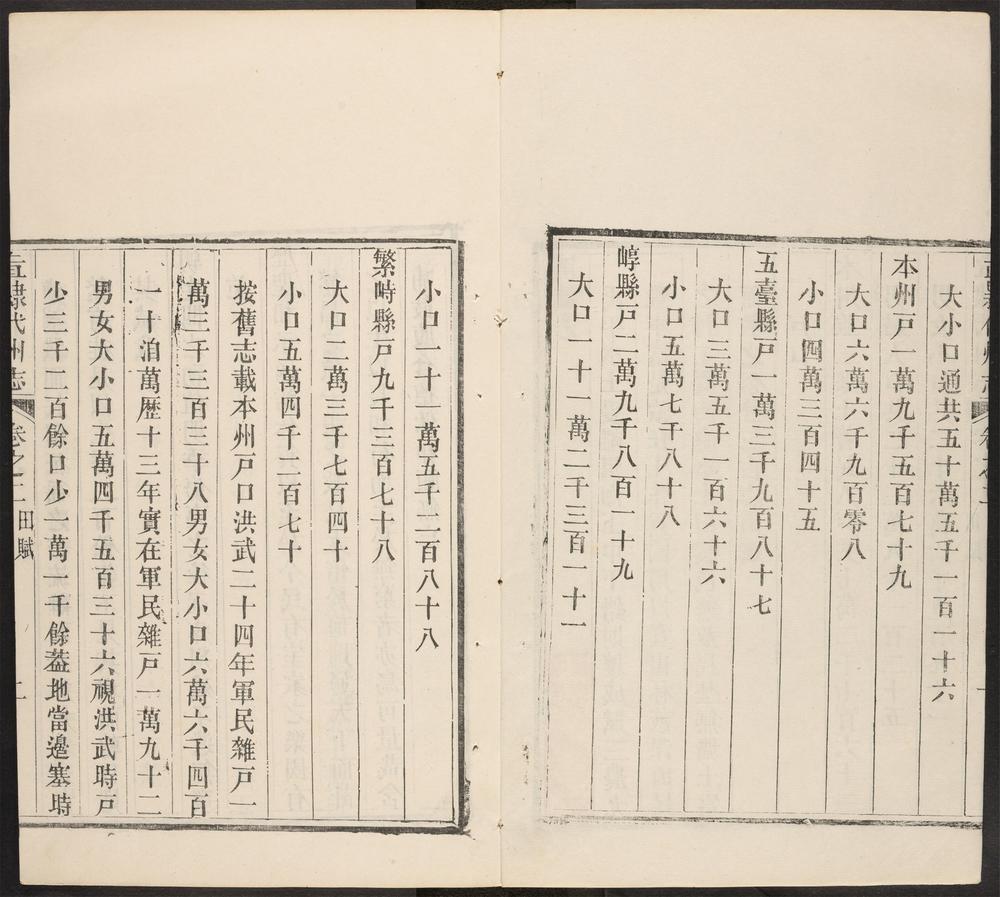 大小口通共五十萬五千一百一十六
本州戸一萬九千五百七十九
大口六萬六千九百零八
小口四萬三百四十五
五臺縣戸一萬三千九百八十七
大口三萬五千一百六十六
小口五萬七千八十八
崞縣戸二萬九千八百一十九
大口一十一萬二千三百一十一
小口一十一萬五千二百八十八
繁峙縣戸九千三百七十八
大口二萬三千七百四十
小口五萬四千二百七十
按舊志載本州戸口洪武二十四年軍民雜戸一
萬三千三百三十八男女大小口六萬六千四百
一十洎萬歷十三年實在軍民雜戸一萬九十二
男女大小口五萬四千五百三十六視洪武時戸
少三千二百餘口少一萬一千餘葢地當邊塞時
直隸代州志
卷之二 田賦
二